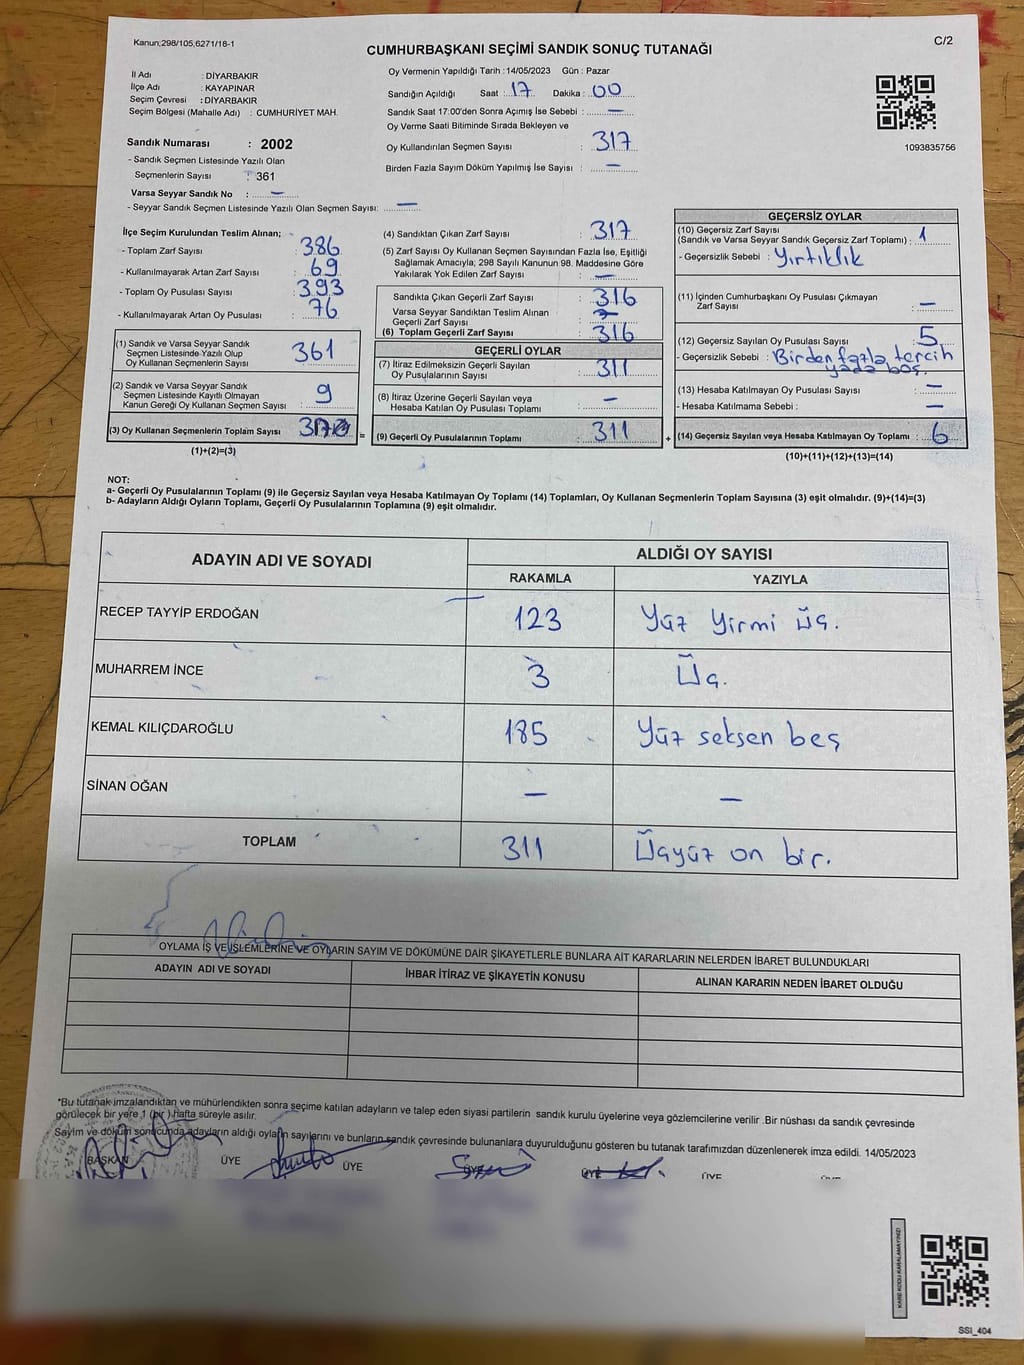 Kanun;298/105,6271/18-1
C/2
CUMHURBAŞKANI SEÇİMİ SANDIK SONUÇ TUTANAĞI
İl Adı : DİYARBAKIR
İlçe Adı : KAYAPINAR
Seçim Çevresi : DİYARBAKIR
Seçim Bölgesi (Mahalle Adı) : CUMHURİYET MAH.
Sandık Numarası : 2002
- Sandık Seçmen Listesinde Yazılı Olan
Seçmenlerin Sayısı : 361
Varsa Seyyar Sandık No : —
- Seyyar Sandık Seçmen Listesinde Yazılı Olan Seçmen Sayısı: —
Oy Vermenin Yapıldığı Tarih : 14/05/2023 Gün : Pazar
Sandığın Açıldığı Saat : 17 Dakika : 00
Sandık Saat 17:00'den Sonra Açımış İse Sebebi : —
Oy Verme Saati Bitiminde Sırada Bekleyen ve
Oy Kullandırılan Seçmen Sayısı : 317
Birden Fazla Sayım Döküm Yapılmış İse Sayısı : —
1093835756
İlçe Seçim Kurulundan Teslim Alınan;
- Toplam Zarf Sayısı : 386
- Kullanılmayarak Artan Zarf Sayısı : 69
- Toplam Oy Pusulası Sayısı : 393
- Kullanılmayarak Artan Oy Pusulası : 76
(1) Sandık ve Varsa Seyyar Sandık
Seçmen Listesinde Yazılı Olup
Oy Kullanan Seçmenlerin Sayısı : 361
(2) Sandık ve Varsa Seyyar Sandık
Seçmen Listesinde Kayıtlı Olmayan
Kanun Gereği Oy Kullanan Seçmen Sayısı : 9
(3) Oy Kullanan Seçmenlerin Toplam Sayısı
(1)+(2)=(3)
(4) Sandıktan Çıkan Zarf Sayısı : 317
(5) Zarf Sayısı Oy Kullanan Seçmen Sayısından Fazla İse, Eşitliği
Sağlamak Amacıyla; 298 Sayılı Kanunun 98. Maddesine Göre
Yakılarak Yok Edilen Zarf Sayısı : —
Sandıkta Çıkan Geçerli Zarf Sayısı : 316
Varsa Seyyar Sandıktan Teslim Alınan
Geçerli Zarf Sayısı : —
(6) Toplam Geçerli Zarf Sayısı : 316
GEÇERLİ OYLAR
(7) İtiraz Edilmeksizin Geçerli Sayılan
Oy Pusulalarının Sayısı : 311
(8) İtiraz Üzerine Geçerli Sayılan veya
Hesaba Katılan Oy Pusulası Toplamı : —
= (9) Geçerli Oy Pusulalarının Toplamı : 311 +
GEÇERSİZ OYLAR
(10) Geçersiz Zarf Sayısı
(Sandık ve Varsa Seyyar Sandık Geçersiz Zarf Toplamı) : 1
- Geçersizlik Sebebi : Yırtıklık
(11) İçinden Cumhurbaşkanı Oy Pusulası Çıkmayan
Zarf Sayısı : —
(12) Geçersiz Sayılan Oy Pusulası Sayısı : 5
- Geçersizlik Sebebi : Birden fazla tercih
yada boş.
(13) Hesaba Katılmayan Oy Pusulası Sayısı : —
- Hesaba Katılmama Sebebi : —
(14) Geçersiz Sayılan veya Hesaba Katılmayan Oy Toplamı : 6
(10)+(11)+(12)+(13)=(14)
NOT:
a- Geçerli Oy Pusulalarının Toplamı (9) ile Geçersiz Sayılan veya Hesaba Katılmayan Oy Toplamı (14) Toplamları, Oy Kullanan Seçmenlerin Toplam Sayısına (3) eşit olmalıdır. (9)+(14)=(3)
b- Adayların Aldığı Oyların Toplamı, Geçerli Oy Pusulalarının Toplamına (9) eşit olmalıdır.
ADAYIN ADI VE SOYADI
ALDIĞI OY SAYISI
RAKAMLA YAZIYLA
RECEP TAYYİP ERDOĞAN 123 Yüz Yirmi üç.
MUHARREM İNCE 3 Üç.
KEMAL KILIÇDAROĞLU 185 Yüz seksen beş
SİNAN OĞAN — —
TOPLAM 311 Üçyüz on bir.
OYLAMA İŞ VE İŞLEMLERİNE VE OYLARIN SAYIM VE DÖKÜMÜNE DAİR ŞİKAYETLERLE BUNLARA AİT KARARLARIN NELERDEN İBARET BULUNDUKLARI
ADAYIN ADI VE SOYADI İHBAR İTİRAZ VE ŞİKAYETİN KONUSU ALINAN KARARIN NEDEN İBARET OLDUĞU
*Bu tutanak imzalandıktan ve mühürlendikten sonra seçime katılan adayların ve talep eden siyasi partilerin sandık kurulu üyelerine veya gözlemcilerine verilir .Bir nüshası da sandık çevresinde
görülecek bir yere 1 (bir ) hafta süreyle asılır.
Sayım ve döküm sonucunda adayların aldığı oyların sayılarını ve bunların sandık çevresinde bulunanlara duyurulduğunu gösteren bu tutanak tarafımızdan düzenlenerek imza edildi. 14/05/2023
BAŞKAN ÜYE ÜYE ÜYE ÜYE ÜYE
KARE KODU KARALAMAYINIZ!
SSI_404